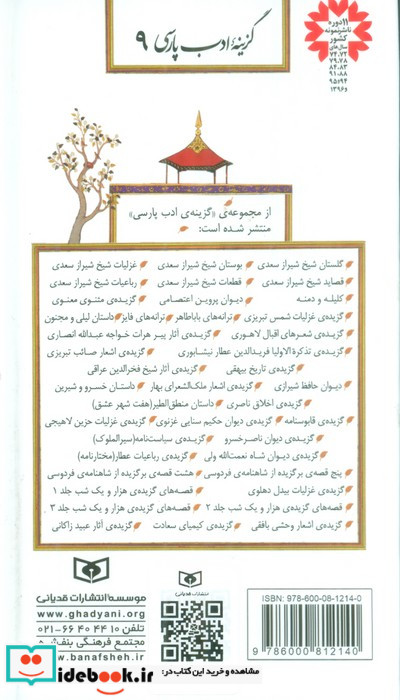 ۱۱ دوره
ناشر نمونه
کشور
سال‌های
۷۴،۷۳
۷۹،۷۸
۸۴،۸۳
۹۱،۸۸
۹۵،۹۴
۱۳۹۶و
گزینهٔ ادب پارسی ۹
از مجموعه‌ی «گزینه‌ی ادب پارسی»
منتشر شده است:
گلستان شیخ شیراز سعدی بوستان شیخ شیراز سعدی غزلیات شیخ شیراز سعدی
قصاید شیخ شیراز سعدی قطعات شیخ شیراز سعدی رباعیات شیخ شیراز سعدی
کلیله و دمنه دیوان پروین اعتصامی گزیده‌ی مثنوی معنوی
گزیده‌ی غزلیات شمس تبریزی ترانه‌های باباطاهر ترانه‌های فایز داستان لیلی و مجنون
گزیده‌ی شعرهای اقبال لاهوری گزیده‌ی آثار پیر هرات خواجه عبدالله انصاری
گزیده‌ی تذکرة‌الاولیا فریدالدین عطار نیشابوری گزیده‌ی اشعار صائب تبریزی
گزیده‌ی تاریخ بیهقی گزیده‌ی آثار شیخ فخرالدین عراقی
دیوان حافظ شیرازی گزیده‌ی اشعار ملک‌الشعرای بهار داستان خسرو و شیرین
گزیده‌ی اخلاق ناصری داستان منطق‌الطیر(هفت شهر عشق)
گزیده‌ی قابوسنامه گزیده‌ی دیوان حکیم سنایی غزنوی گزیده‌ی غزلیات حزین لاهیجی
گزیده‌ی دیوان ناصرخسرو گزیده‌ی سیاست‌نامه(سیرالملوک)
گزیده‌ی دیوان شاه نعمت‌الله ولی گزیده‌ی رباعیات عطار(مختارنامه)
پنج قصه‌ی برگزیده از شاهنامه‌ی فردوسی هشت قصه‌ی برگزیده از شاهنامه‌ی فردوسی
گزیده‌ی غزلیات بیدل دهلوی قصه‌های گزیده‌ی هزار و یک شب جلد ۱
قصه‌های گزیده‌ی هزار و یک شب جلد ۲ قصه‌های گزیده‌ی هزار و یک شب جلد ۳
گزیده‌ی اشعار وحشی بافقی گزیده‌ی کیمیای سعادت گزیده‌ی آثار عبید زاکانی
موسسه انتشارات قدیانی
www.ghadyani.org
تلفن ۱۰ ۴۴ ۴۰ ۶۶-۰۲۱
مجتمع فرهنگی بنفشه
www.banafsheh.ir
انتشارات قدیانی
ISBN: 978-600-08-1214-0
9 786000 812140
iranicdebook.ir
مشاهده و خرید این کتاب در: